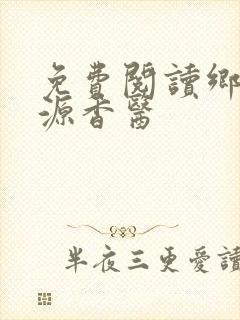 免費閱讀鄉
源香醫
半夜三更愛讀